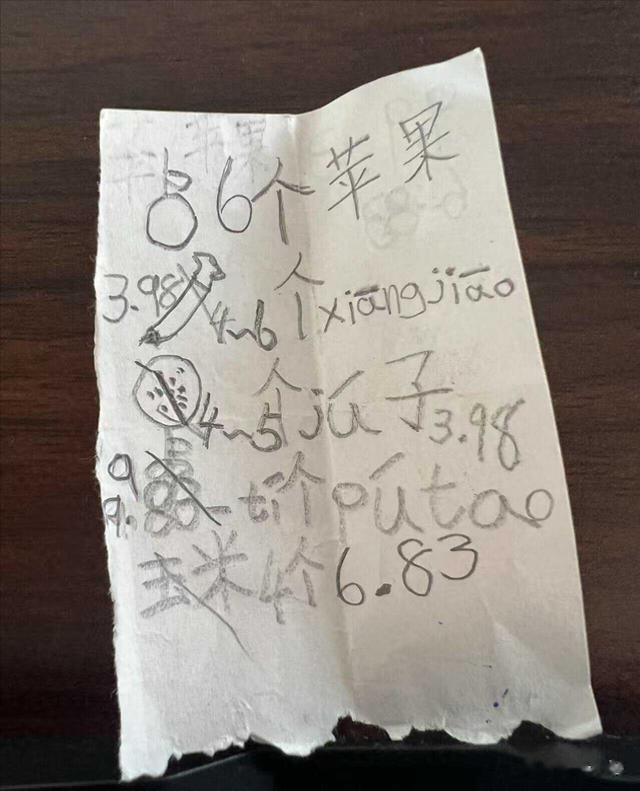 6个苹果
3.98 4~6个xiāngjiāo
4~5个jú子3.98
9.98 一ti个pútao
玉米4个6.83